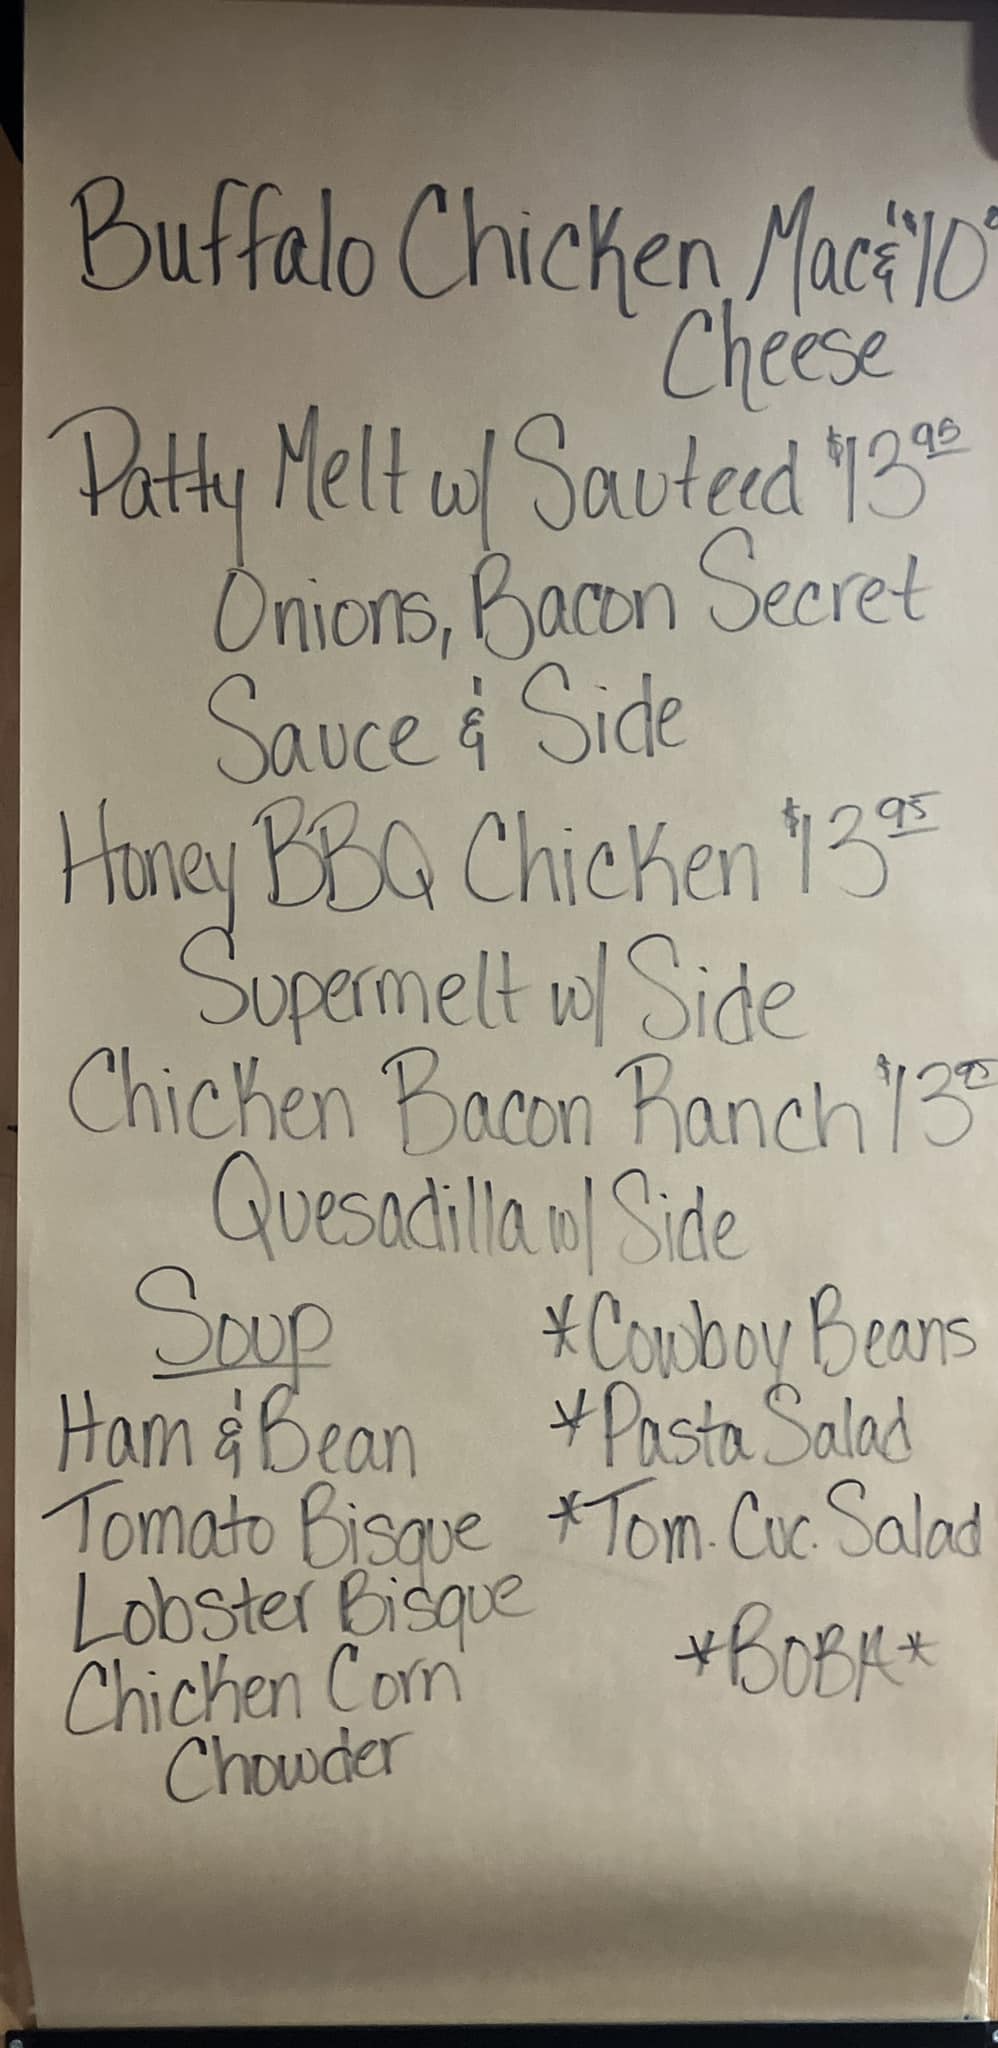 Buffalo Chicken Mac & $10
Cheese
Patty Melt w/ Sauteed $13 95
Onions, Bacon Secret
Sauce & Side
Honey BBQ Chicken $13 95
Supermelt w/ Side
Chicken Bacon Ranch $13 95
Quesadilla w/ Side
Soup
Ham & Bean
Tomato Bisque
Lobster Bisque
Chicken Corn
Chowder
*Cowboy Beans
*Pasta Salad
*Tom. Cuc. Salad
*BOBA*